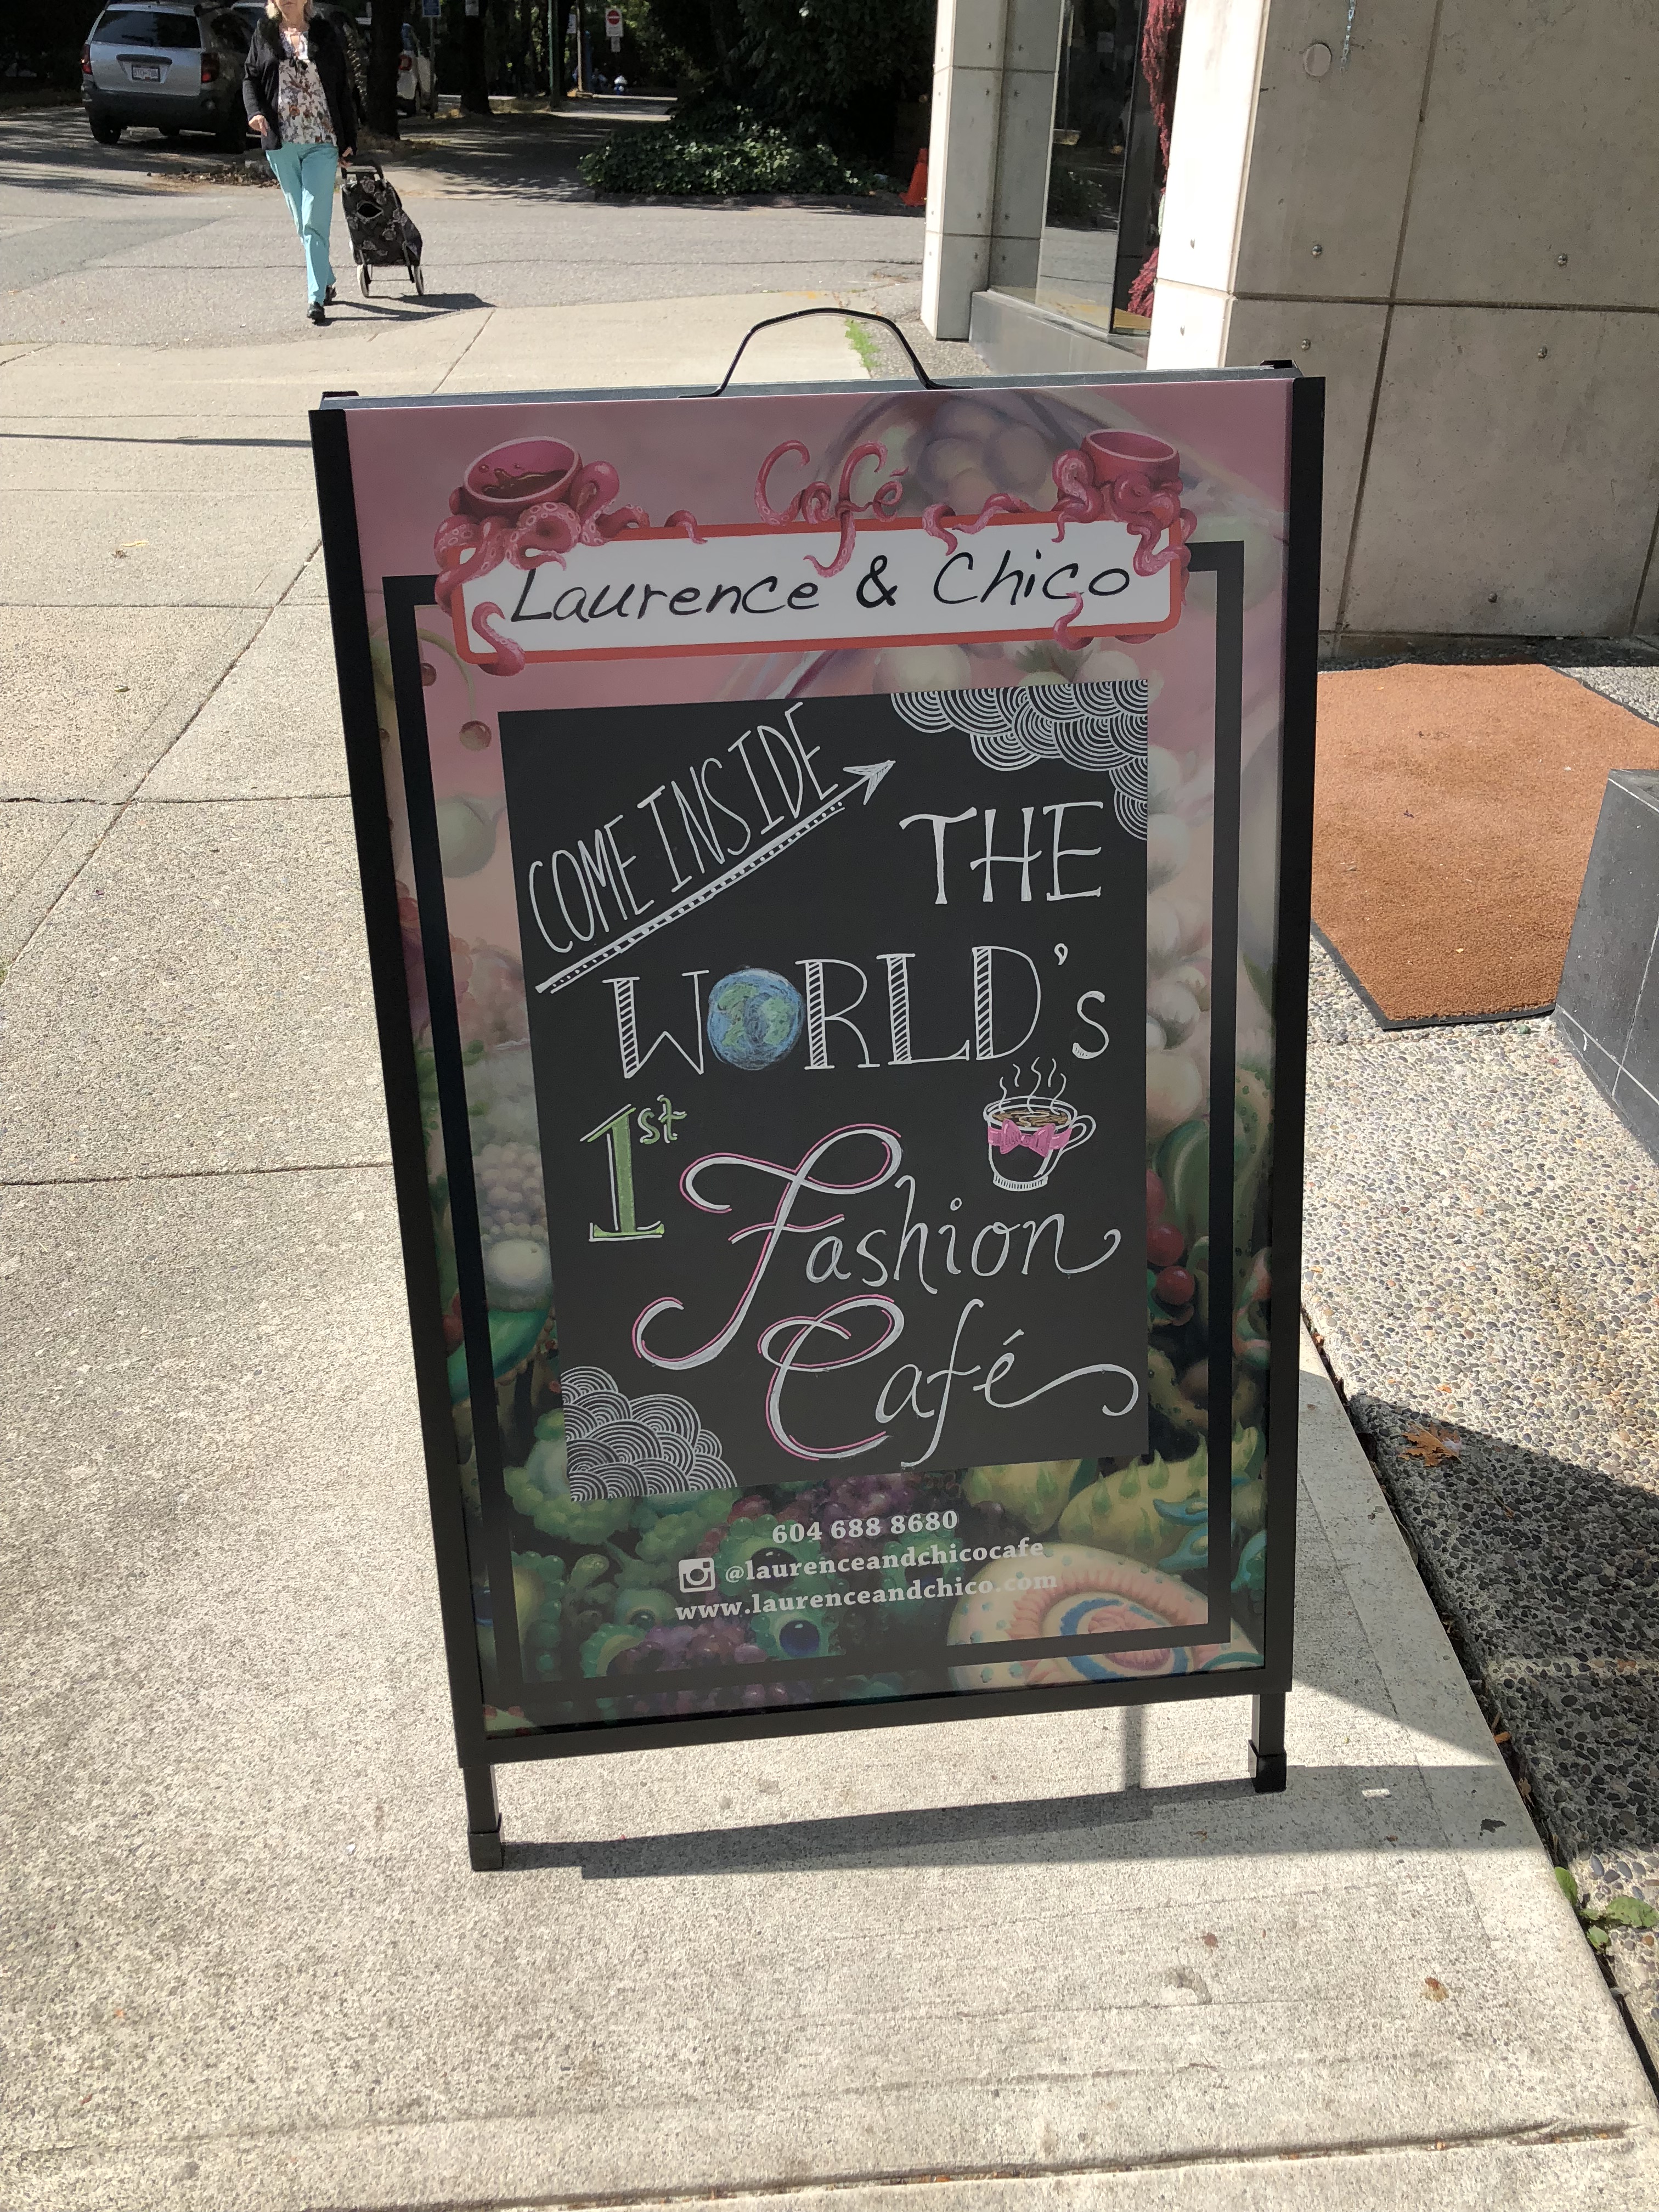 Café
Laurence & Chico
COME INSIDE
THE
WORLD's
1st
Fashion
Café
604 688 8680
@laurenceandchicocafe
www.laurenceandchico.com